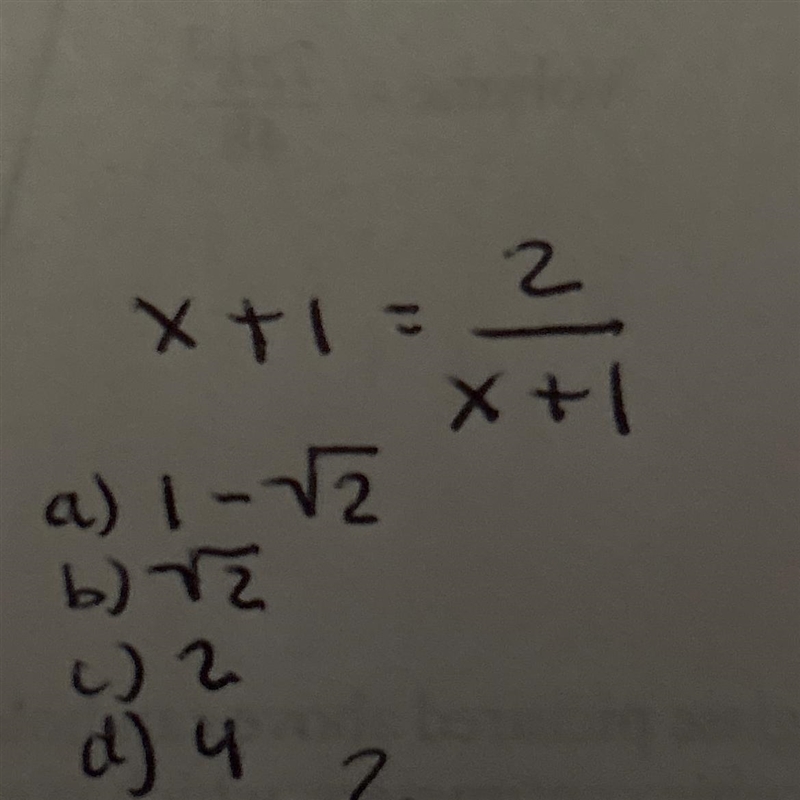 x + 1 = 2/(x + 1)
a) 1 - √2
b) √2
c) 2
d) 4